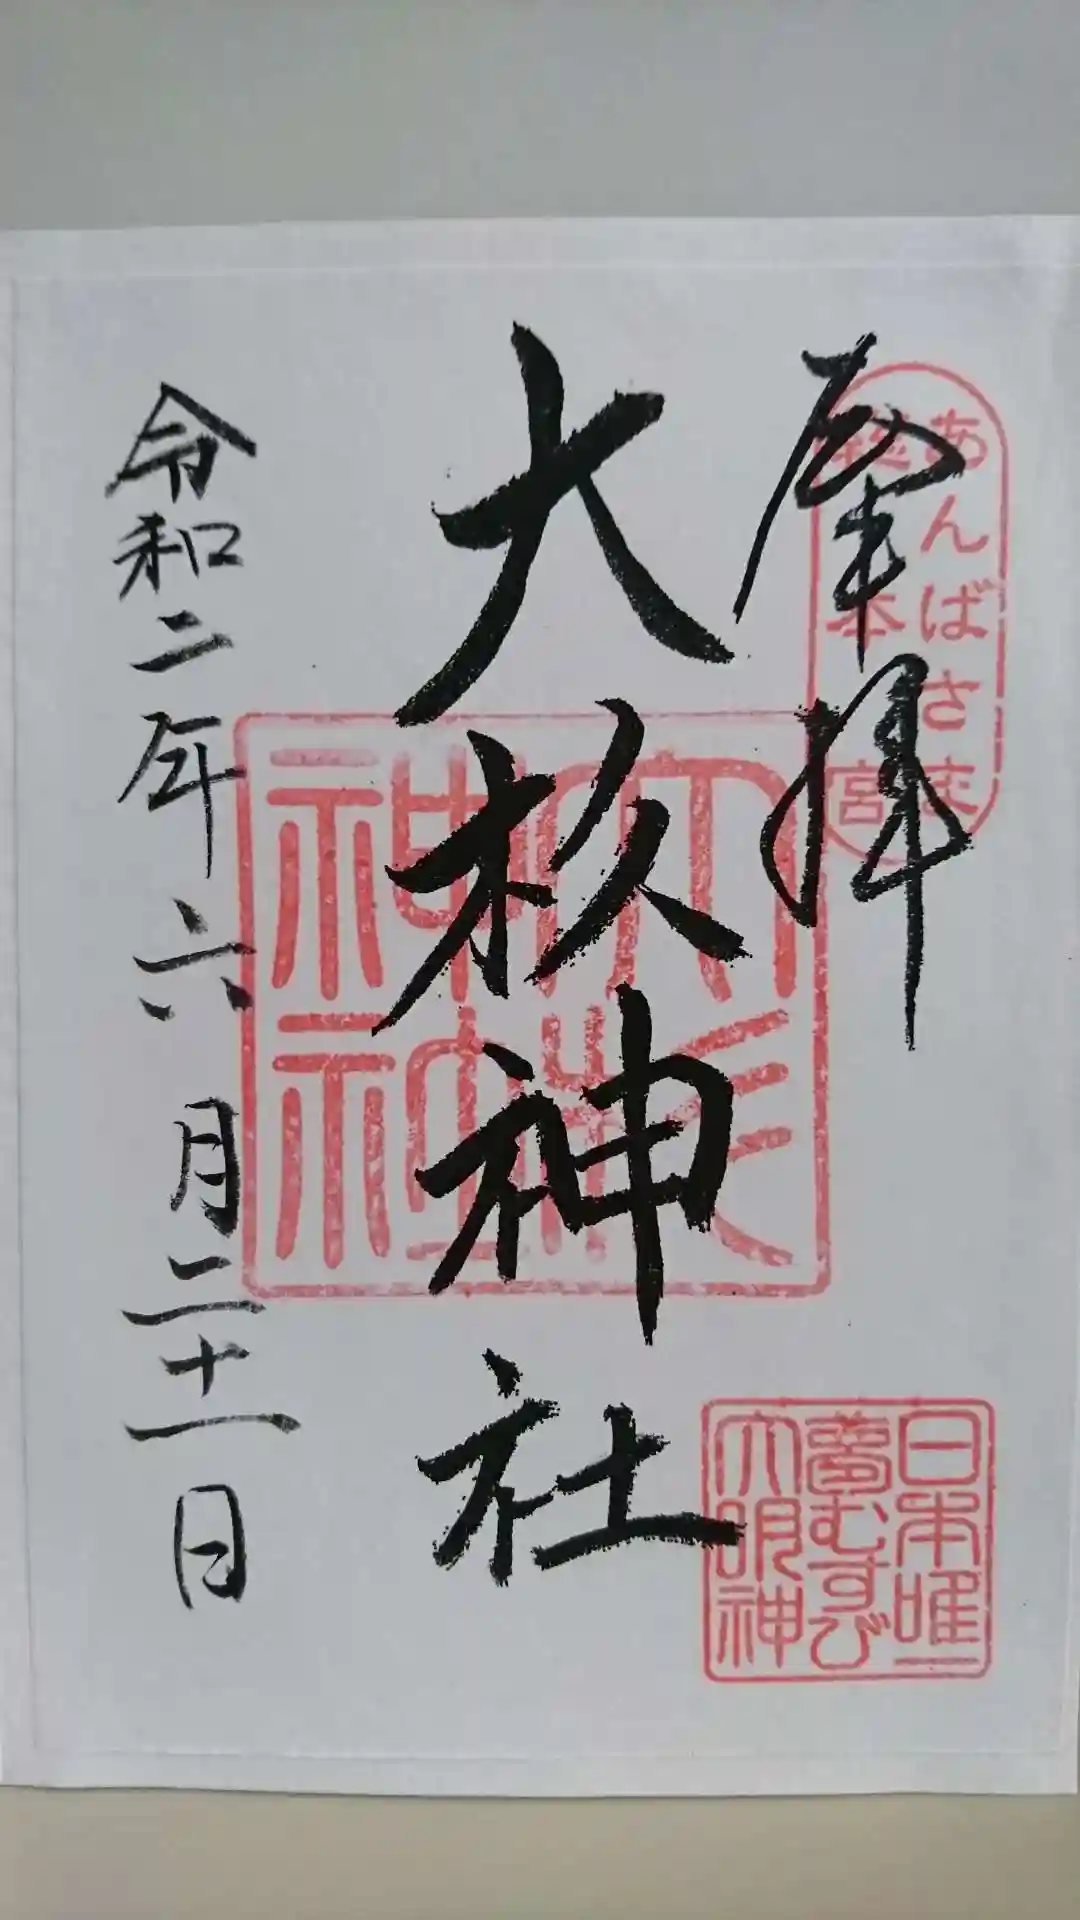 あんばさま
総本宮
拝
大杦神社
大杉
神社
日本唯一
夢むすび
大明神
令和二年六月二十一日